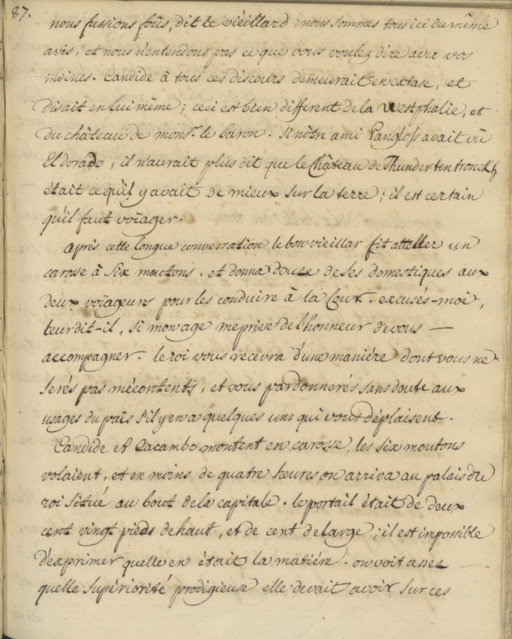 87.
nous fussions fous, dit le vieillard; nous sommes tous ici du même
avis, et nous n'entendons pas ce que vous voulez dire avec vos
moines. Candide à tous ces discours demeurait en extase, et
disait en lui même; ceci est bien different de la Westphalie, et
du château de mons.r le baron. si nôtre ami Pangloss avait vû
Eldorado, il n'aurait plus dit que le Château de Thunder ten tronckh
était ce qu'il y avait de mieux sur la terre; il est certain
qu'il faut voïager.
après cette longue conversation le bon vieillar fit atteller un
carosse à six moutons. et donna douze de ses domestiques aux
deux voïageurs pour les conduire à la Cour. excusés-moi,
leur dit-il, si mon age me prive de l'honneur de vous —
accompagner. le roi vous recevra d'une manière dont vous ne
serés pas mécontents, et vous pardonnerés sans doute aux
usages du païs s'il y en a quelques uns qui vous déplaisent.
Candide et Cacambo montent en carosse, les six moutons
volaient, et en moins de quatre heures on arriva au palais du
roi situé au bout de la capitale. le portail était de deux
cent vingt pieds de haut, et de cent de large; il est impossible
d'exprimer quelle en était la matiére. on voit assez
quelle supériorité prodigieuse elle devait avoir sur ces